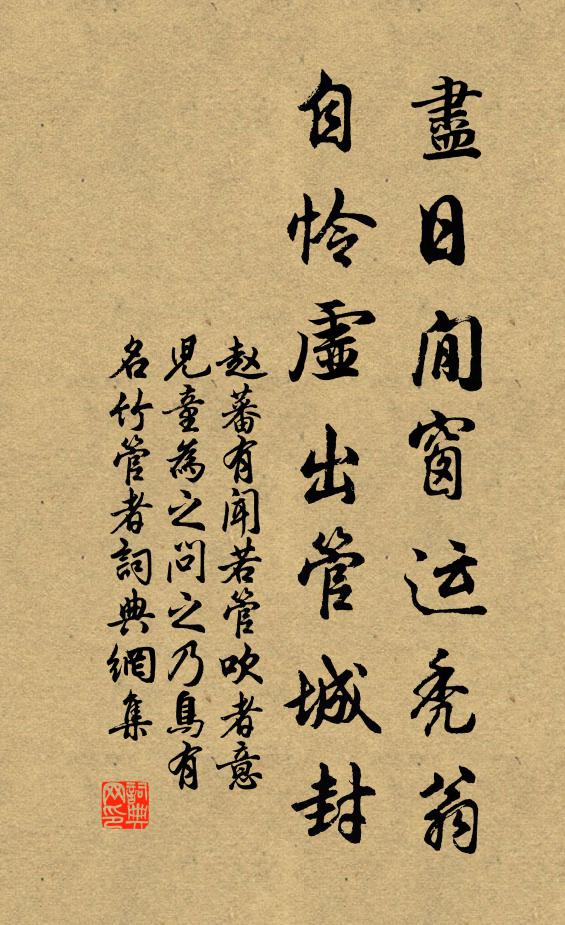 盡日閒窗运秃翁
自怜虛出管城封
赵蕃有闻若管吹者意
児童為之问之乃鳥有
名竹管者詞典網集
詞典
网印